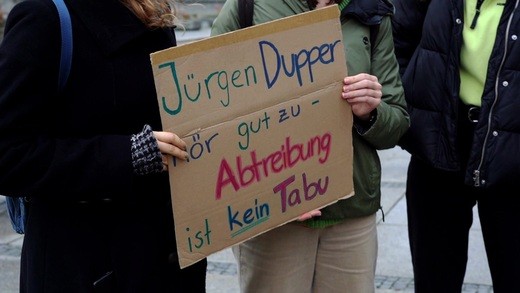 Jürgen Dupper
hör gut zu -
Abtreibung
ist kein Tabu